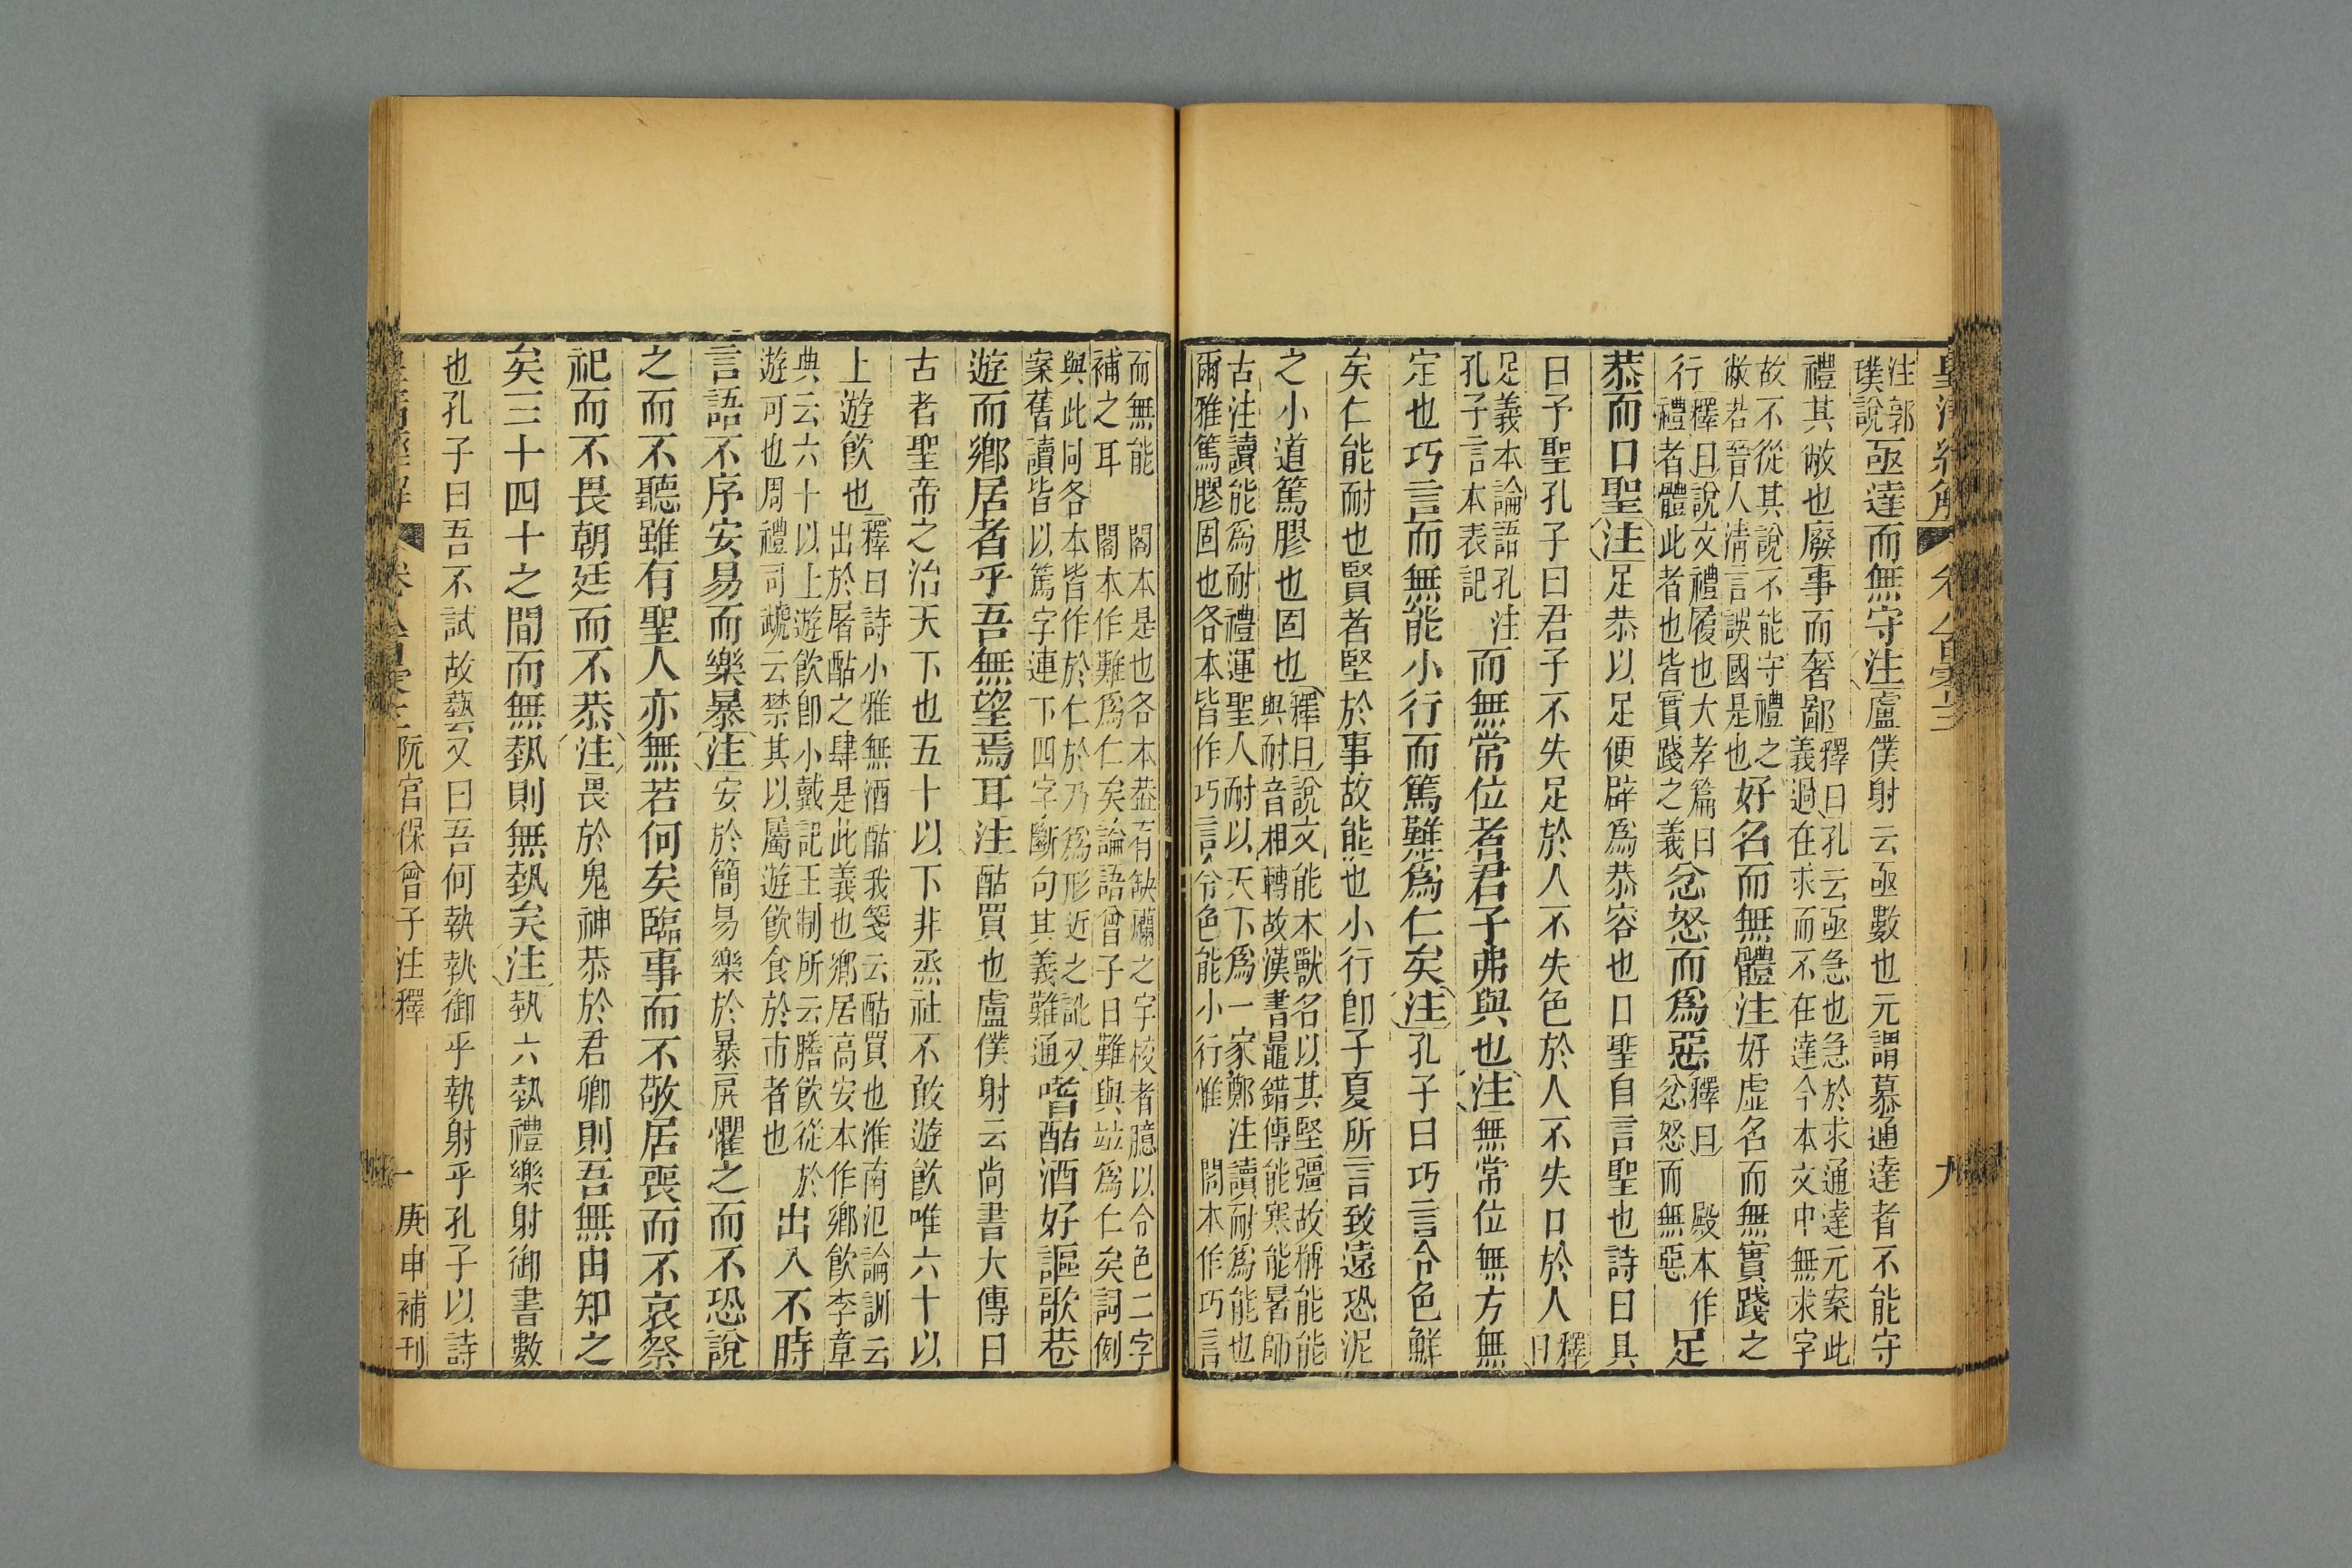 皇清經解 卷八百零三 九
注郭璞說亟達而無守注盧僕射云亟數也元謂慕通達者不能守
禮其敝也廢事而奢鄙釋曰孔云亟急也急於求通達元案此義過在求而不在達今本文中無求字
故不從其說不能守禮之敝若晉人清言誤國是也好名而無體注好虛名而無實踐之
行釋曰說文禮履也大孝篇曰禮者體此者也皆實踐之義忿怒而爲惡釋曰 殿本作忿怒而無惡足
恭而口聖注足恭以足便辟爲恭容也口聖自言聖也詩曰具
曰予聖孔子曰君子不失足於人不失色於人不失口於人釋曰
足義本論語孔注孔子言本表記而無常位者君子弗與也注無常位無方無
定也巧言而無能小行而篤難爲仁矣注孔子曰巧言令色鮮
矣仁能耐也賢者堅於事故能也小行卽子夏所言致遠恐泥
之小道篤膠也固也釋曰說文能本獸名以其堅彊故稱能能與耐音相轉故漢書鼂錯傳能寒能暑師
古注讀能爲耐禮運聖人耐以天下爲一家鄭注讀耐爲能也爾雅篤膠固也各本皆作巧言令色能小行惟 閣本作巧言
而無能 閣本是也各本葢有缺爛之字校者臆以令色二字補之耳 閣本作難爲仁矣論語曾子曰難與竝爲仁矣詞例
與此同各本皆作於仁於乃爲形近之訛又案舊讀皆以篤字連下四字斷句其義難通嗜酤酒好謳歌巷
遊而鄉居者乎吾無望焉耳注酤買也盧僕射云尚書大傳曰
古者聖帝之治天下也五十以下非烝社不敢遊飲唯六十以
上遊飲也釋曰詩小雅無酒酤我箋云酤買也淮南氾論訓云出於屠酤之肆是此義也鄉居高安本作鄉飲李章
典云六十以上遊飲卽小戴記王制所云膳飲從於遊可也周禮司虣云禁其以屬遊飲食於市者也出入不時
言語不序安易而樂暴注安於簡易樂於暴戾懼之而不恐說
之而不聽雖有聖人亦無若何矣臨事而不敬居喪而不哀祭
祀而不畏朝廷而不恭注畏於鬼神恭於君卿則吾無由知之
矣三十四十之間而無埶則無埶矣注埶六埶禮樂射御書數
也孔子曰吾不試故藝又曰吾何執執御乎執射乎孔子以詩
皇清經解 卷八百零三 阮宮保曾子注釋 一 庚申補刊